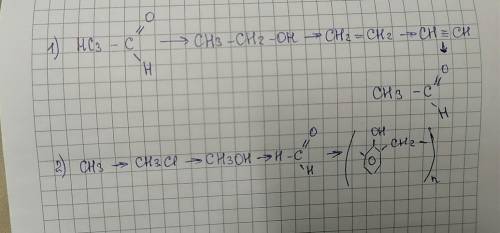 O
1) HC3 - C → CH3 - CH2 - OH → CH2 = CH2 → CH ≡ CH
H
O
CH3 - C
H
O
2) CH3 → CH3Cl → CH3OH → H - C → ( OH CH2 - )n
H